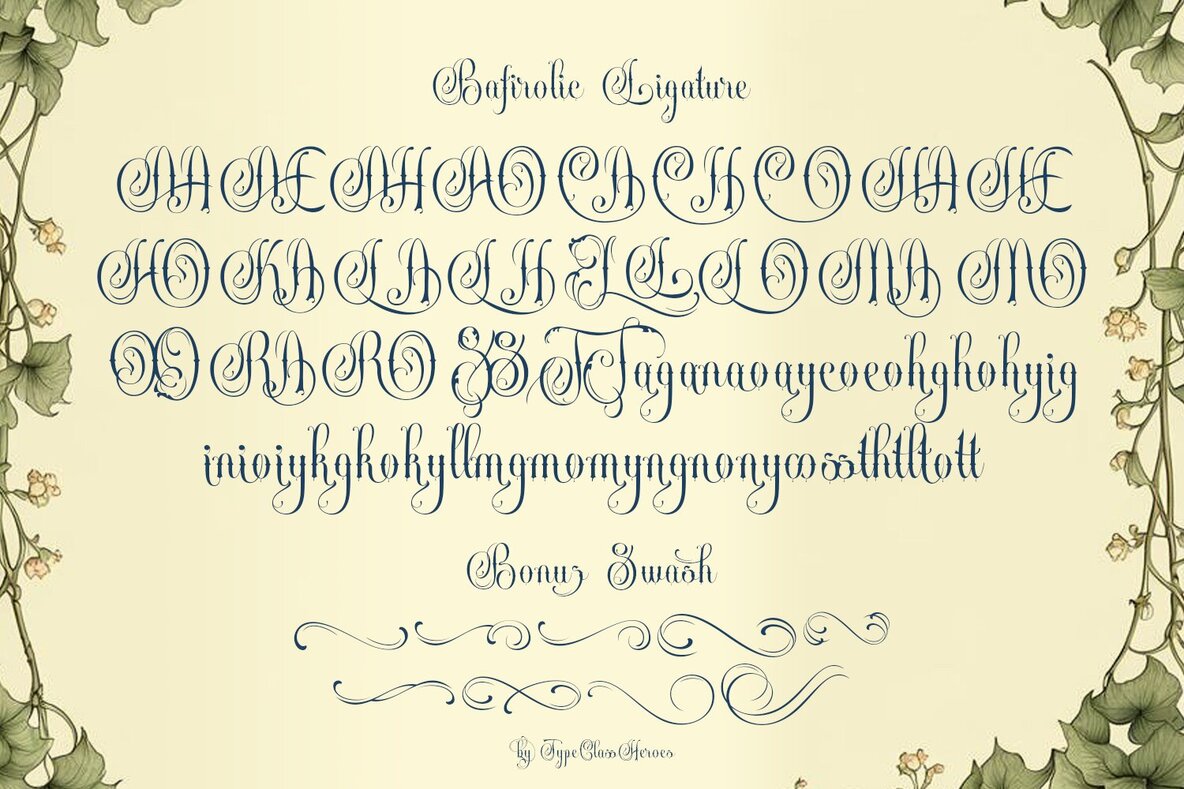 Bafirolic Ligature
AA AE AH AO CA CH CO HA HE
HO KA LA LH LL LO MA MO
OO RA RO SS TT ag an ao ay co eo hg hk ho hy ig
in io iy kg ko ky ll mg mo my ng no ny oo ss th tl to tt
Bonus Swash
by TypeClassHeroes